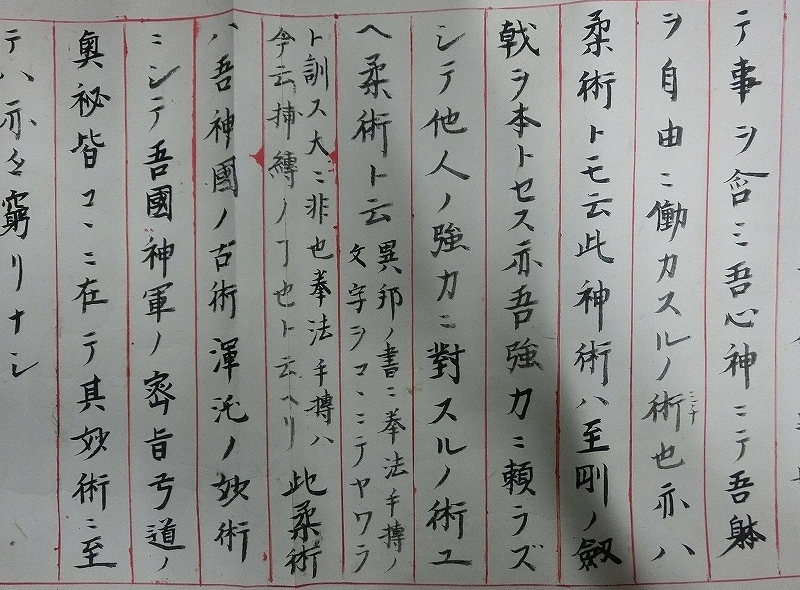 テ事ヲ含ミ吾心神ニテ吾躰
ヲ自由ニ働カスルノ術也亦ハ
ミチ
柔術トモ云此神術ハ至剛ノ劔
戟ヲ本トセス亦吾強力ニ頼ラズ
シテ他人ノ強力ニ對スルノ術ユ
ヘ柔術ト云
異邦ノ書ニ拳法手搏ノ
文字ヲコヽニテヤワラ
ト訓ス大ニ非也拳法手搏ハ
今云捕縛ノヿ也ト云ヘリ
此柔術
ハ吾神國ノ古術渾沌ノ妙術
ニシテ吾國神軍ノ密旨弓道ノ
奥秘皆コヽニ在テ其妙術ニ至
テハ亦々窮リナシ